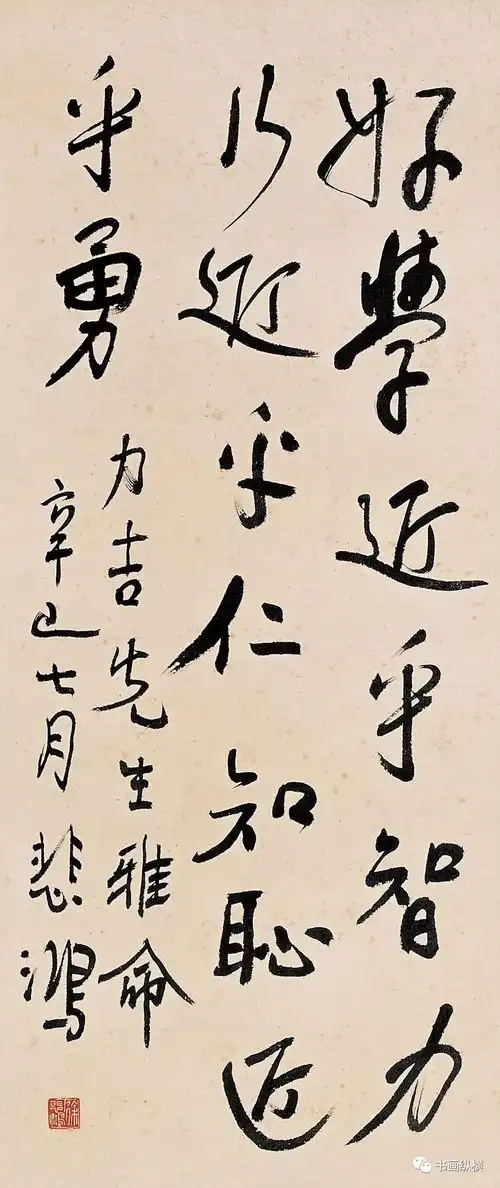 好學近乎智力
行近乎仁知恥近
乎勇
力吉先生雅命
辛巳七月悲鴻
书画纵横